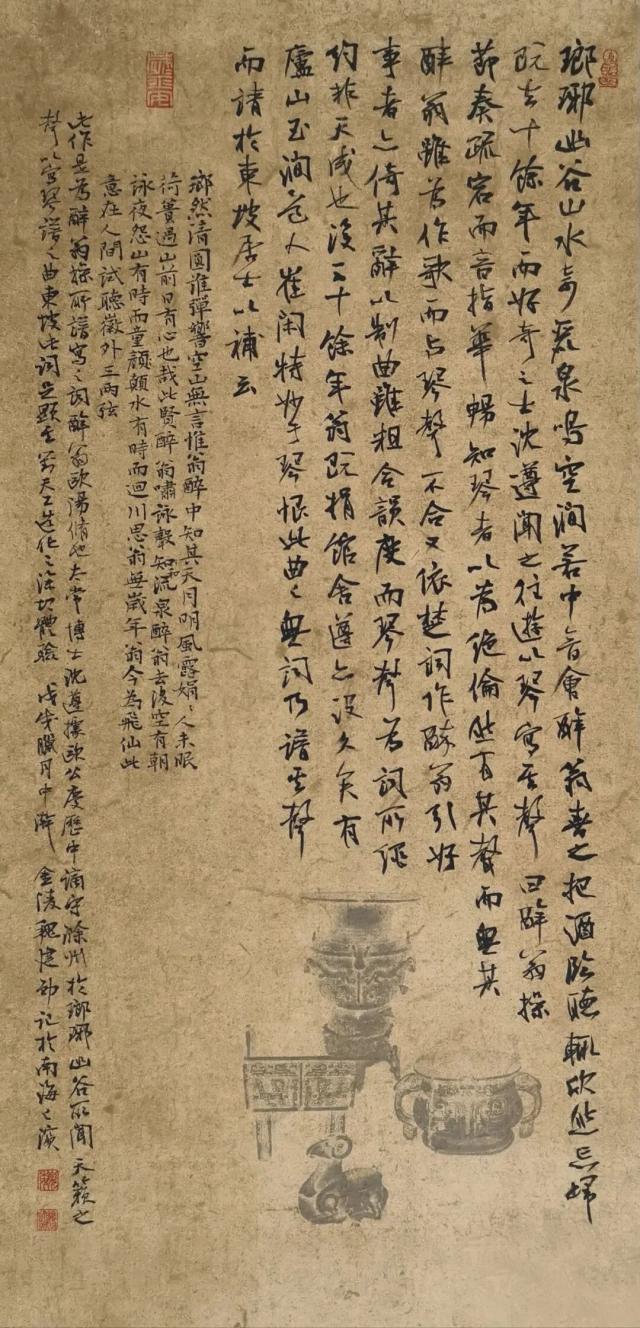 瑯琊幽谷山水奇麗泉鳴空澗若中音會醉翁喜之把酒臨聽輒欣然忘歸
既去十餘年而好奇之士沈遵聞之往遊以琴寫其聲曰醉翁操
節奏疏宕而音指華暢知琴者以為絕倫然有其聲而無其
辭翁雖為作歌而与琴聲不合又依楚詞作醉翁引好
事者亦倚其辭以制曲雖粗合韻度而琴聲為詞所繩
約非天成也後三十餘年翁既捐館舍遵亦沒久矣有
廬山玉澗道人崔閑特妙于琴恨此曲之無詞乃譜其聲
而請於東坡居士以補云
瑯然清圓誰彈響空山無言惟翁醉中知其天月明風露娟〻人未眠
荷蕢過山前曰有心也哉此賢醉翁嘯詠聲和流泉醉翁去後空有朝
詠夜怨山有時而童顛水有時而迴川思翁無歲年翁今為飛仙此
意在人間試聽徽外三兩絃
此作是為醉翁操所譜寫之詞醉翁歐陽脩也太常博士沈遵據歐公慶曆中謫守滁州於瑯琊幽谷所聞天籟之
聲以琴譜之曲東坡此詞天工造化之體驗 戊戌臘月中澣 金陵魏建記於南海之濱